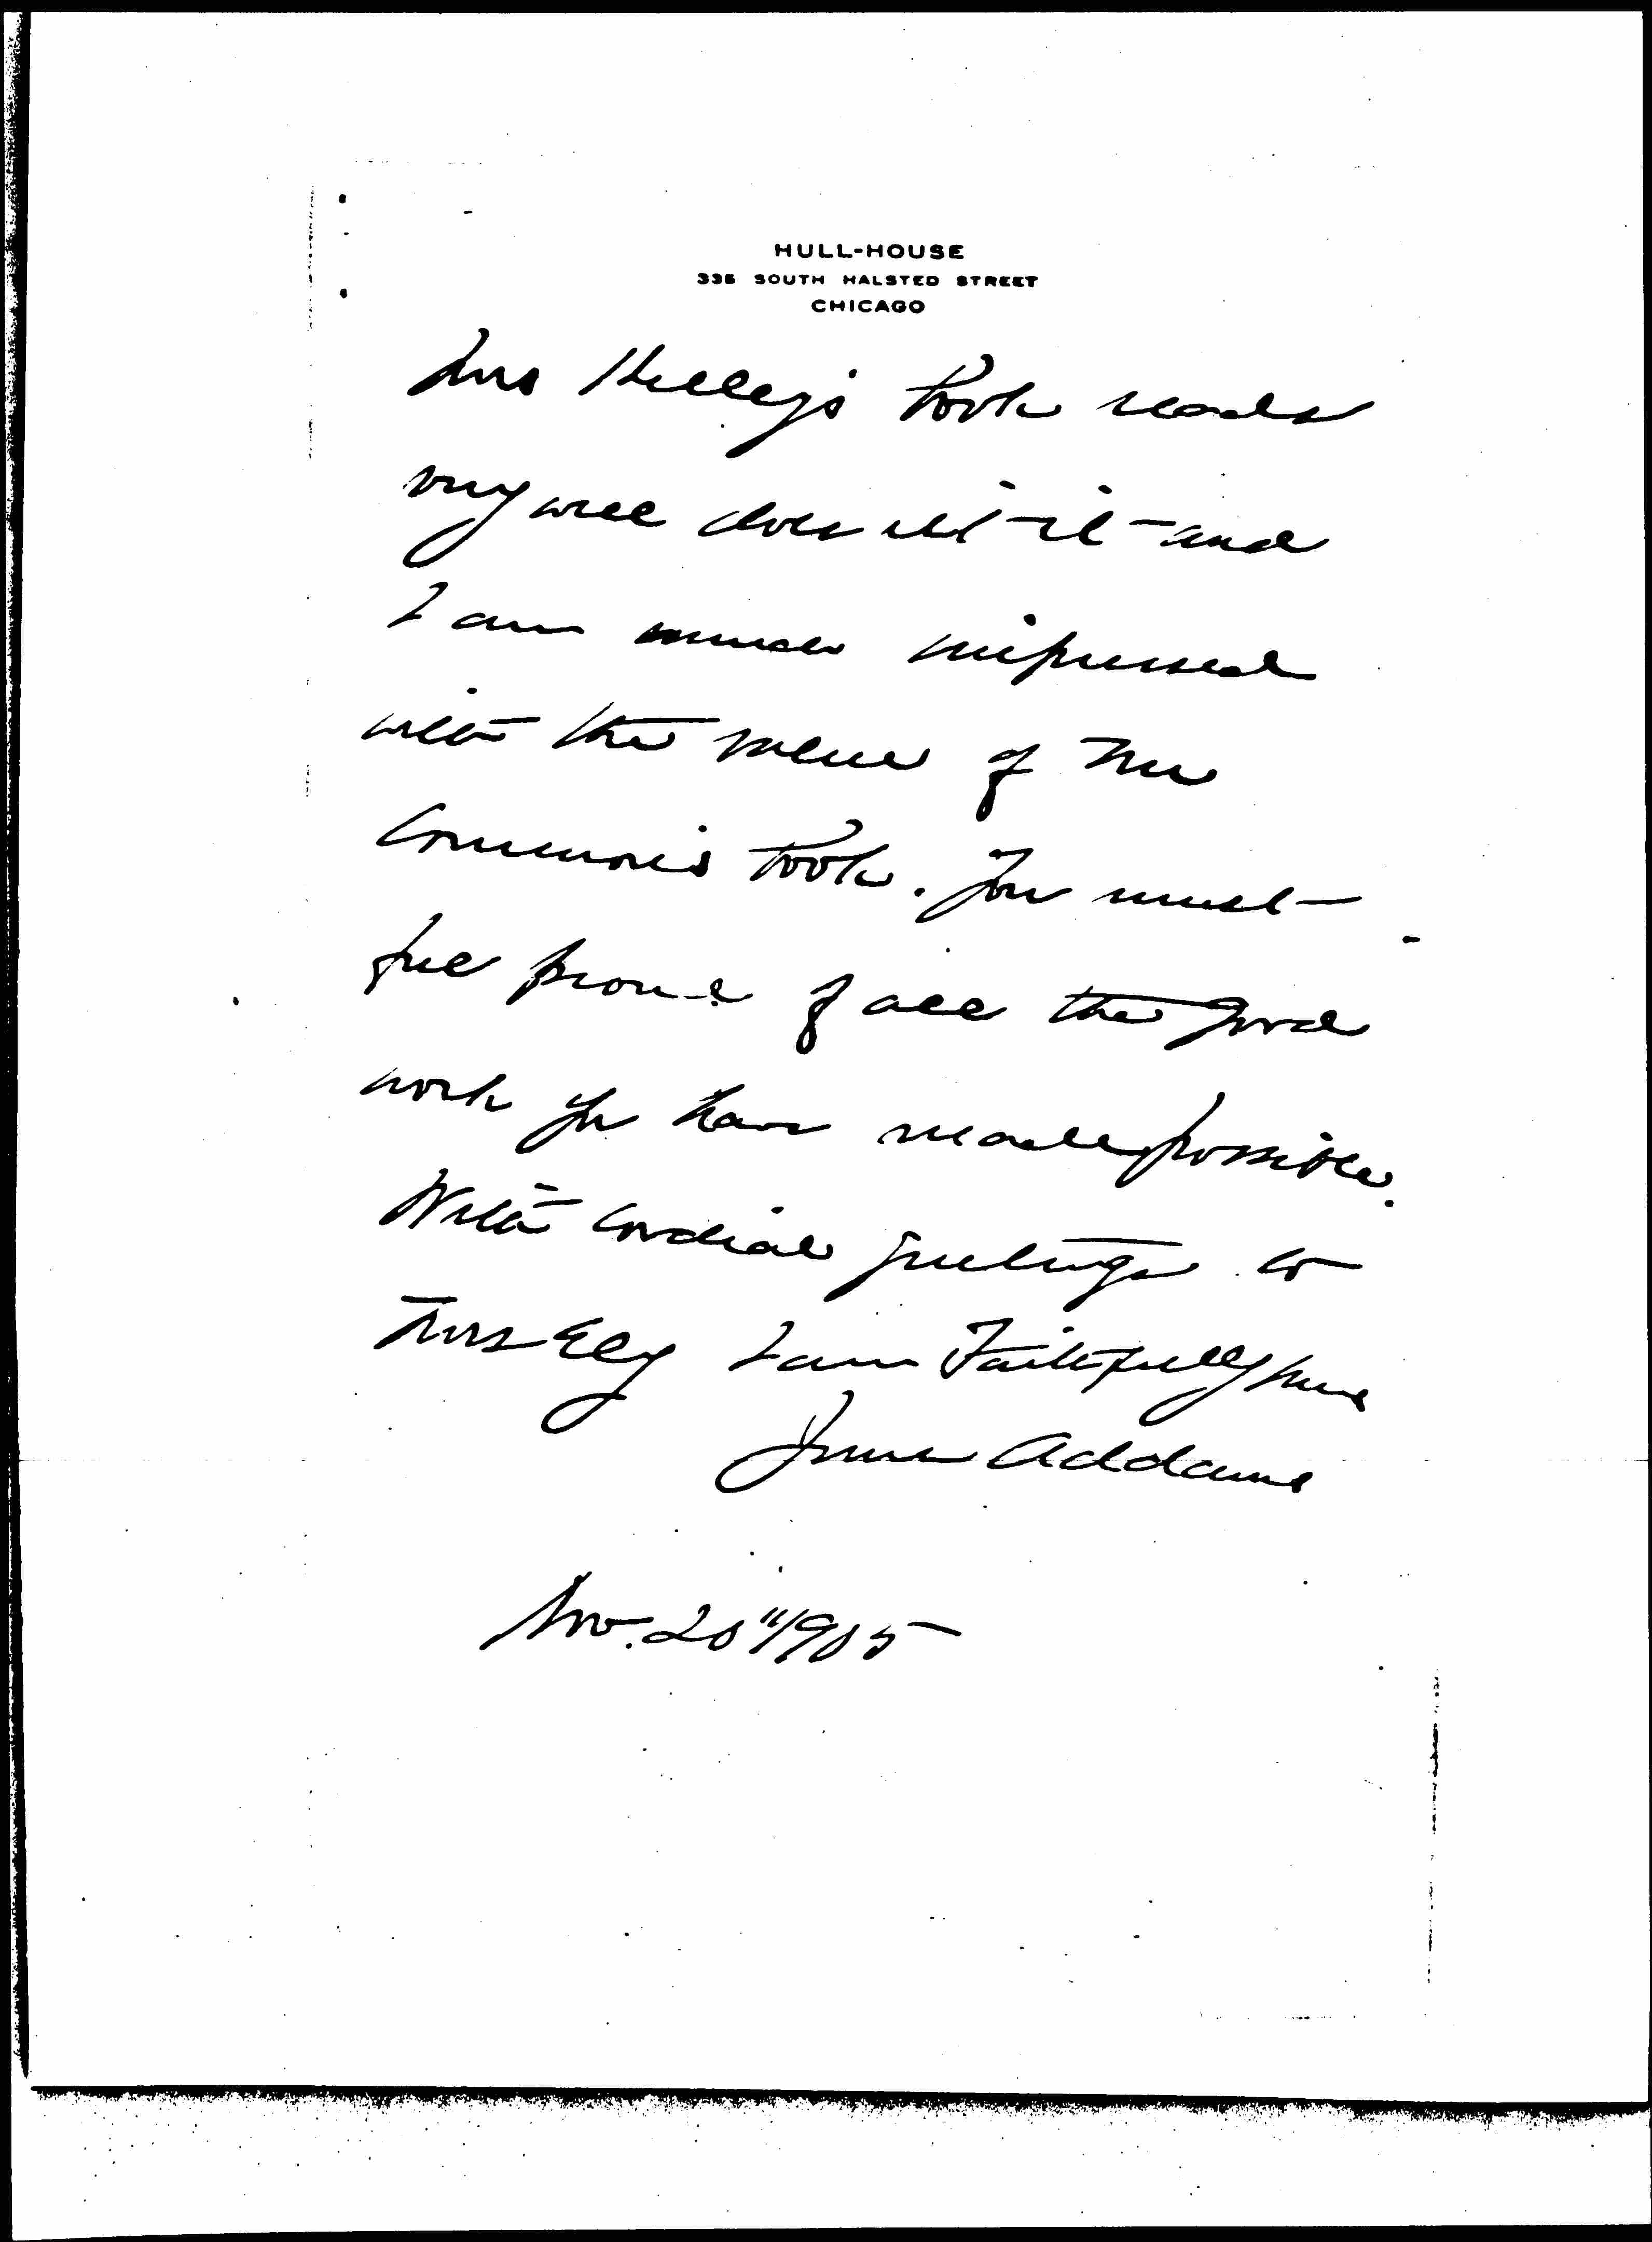 HULL-HOUSE
335 SOUTH HALSTED STREET
CHICAGO
Mrs Kelley's book reads
very well does it not and
I am much impressed
with the value of Mr
Commons book. You must
feel proud of all the good
work you have made possible.
With cordial greetings to
Mrs Ely I am Faithfully yours
Jane Addams
Nov. 20" 1905